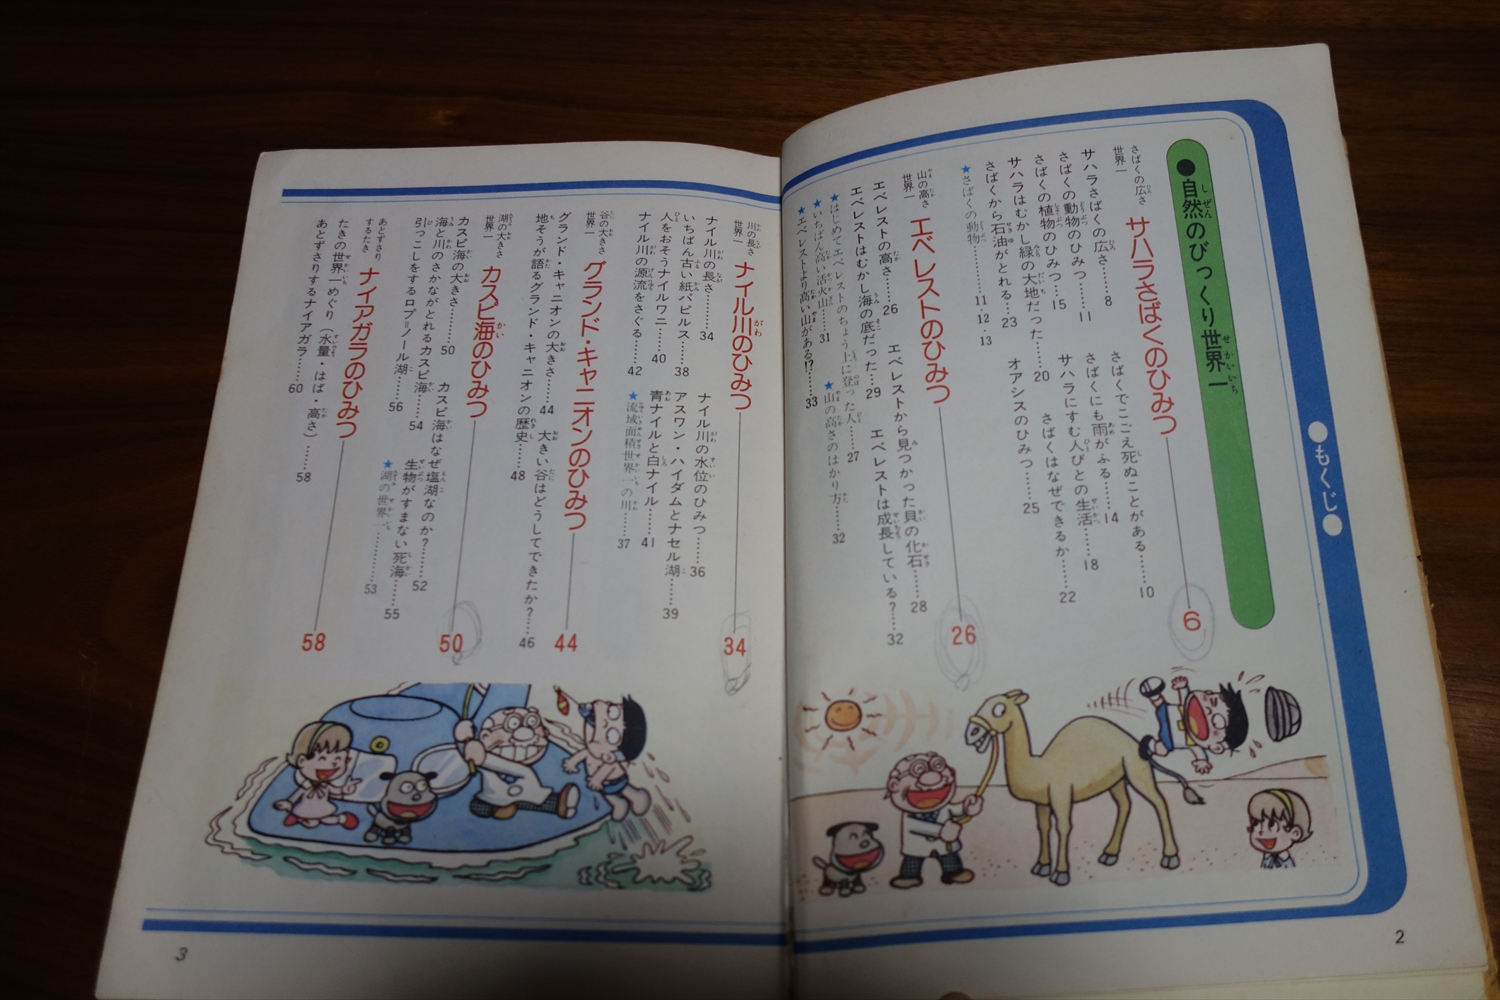 ●もくじ●
●自然のびっくり世界一
さばくの広さ世界一
サハラさばくのひみつ 6
サハラさばくの広さ……8
さばくでこごえ死ぬことがある……10
さばくの動物のひみつ……11
さばくにも雨がふる……14
さばくの植物のひみつ……15
サハラにすむ人びとの生活……18
サハラはむかし緑の大地だった……20
さばくはなぜできるか……22
さばくから石油がとれる……23
オアシスのひみつ……25
★さばくの動物……11・12・13
山の高さ世界一
エベレストのひみつ 26
エベレストの高さ……26
エベレストから見つかった貝の化石……28
エベレストはむかし海の底だった……29
エベレストは成長している?……32
★はじめてエベレストのちょう上に登った人……27
★いちばん高い活火山……31
★山の高さのはかり方……32
★エベレストより高い山がある!?……33
2
川の長さ世界一
ナイル川のひみつ 34
ナイル川の長さ……34
ナイル川の水位のひみつ……36
いちばん古い紙パピルス……38
アスワン・ハイダムとナセル湖……39
人をおそうナイルワニ……40
青ナイルと白ナイル……41
ナイル川の源流をさぐる……42
★流域面積世界一の川……37
谷の大きさ世界一
グランド・キャニオンのひみつ 44
グランド・キャニオンの大きさ……44
大きい谷はどうしてできたか?……46
地そうが語るグランド・キャニオンの歴史……48
湖の大きさ世界一
カスピ海のひみつ 50
カスピ海の大きさ……50
カスピ海はなぜ塩湖なのか?……52
海と川のさかながとれるカスピ海……54
生物がすまない死海……55
引っこしをするロプ=ノール湖……56
★湖の世界一……53
あとずさりするたき
ナイアガラのひみつ 58
たきの世界一めぐり(水量・はば・高さ)……58
あとずさりするナイアガラ……60
3